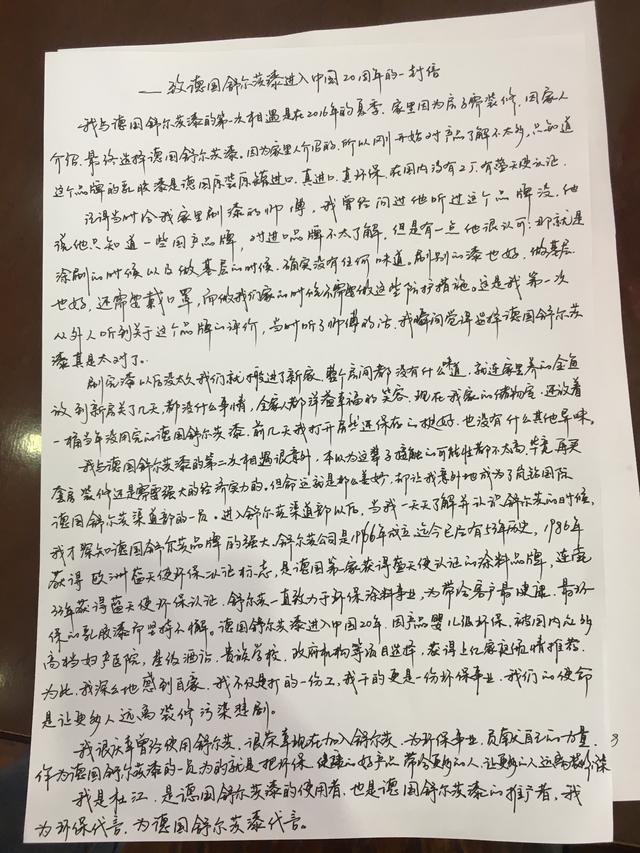 ——致德国舒尔茨漆进入中国20周年的一封信
我与德国舒尔茨漆的第一次相遇是在2016年的夏季,家里因为房子需装修,因家人
介绍,最终选择德国舒尔茨漆。因为家里人介绍的,所以刚开始对产品了解不太多,只知道
这个品牌的乳胶漆是德国原装原罐进口,真进口,真环保,在国内没有工厂,有蓝天使认证.
记得当时给我家里刷漆的师傅,我曾经问过他听过这个品牌没,他
说他只知道一些国产品牌,对进口品牌不太了解,但是有一点他很认可:那就是
涂刷的时候以及做基层的时候,确实没有任何味道。刷别的漆也好,做基层
也好,还需要戴口罩,而做我们家的时候不需要做这些防护措施。这是我第一次
从外人听到关于这个品牌的评价,当时听了师傅的话,我瞬间觉得选择德国舒尔茨
漆真是太对了。
刷完漆以后没太久我们就搬进了新家,整个房间都没有什么味道,就连家里养的金鱼
放到新房关了几天,都没什么事情,全家人都洋溢幸福的笑容,现在我家的储物室,还放着
一桶当年没用完的德国舒尔茨漆,前几天我打开后还保存的极好,也没有什么其他异味。
我与德国舒尔茨漆的第二次相遇很意外,本以为这辈子接触的可能性都不太高,毕竟再买
套房装修还是需要强大的经济实力的,但命运就是那么美妙,却让我意外地成为了
德国舒尔茨渠道部的一员。进入舒尔茨渠道部以后,当我一天天了解并认识舒尔茨的时候,
我才深知德国舒尔茨品牌的强大,舒尔茨公司是1966年成立,迄今已经有53年历史,1986年
获得欧洲蓝天使环保认证标志,是德国第一家获得蓝天使认证的涂料品牌,连续
33年获得蓝天使环保认证,舒尔茨一直致力于环保涂料事业,为带给客户最健康,最环
保的乳胶漆而坚持不懈。德国舒尔茨漆进入中国20年,因产品婴儿级环保,被国内众多
高档妇产医院,星级酒店,贵族学校,政府机构等项目选择,获得上亿家庭倾情推荐.
为此,我深深地感到自豪,我不仅是打的一份工,我干的更是一份环保事业,我们的使命
是让更多人远离装修污染悲剧。
我很庆幸曾经使用舒尔茨,很荣幸现在加入舒尔茨,为环保事业,贡献自己的力量.
作为德国舒尔茨漆的一员为的就是把环保,健康的好产品带给更多的人,让更多的人远离污染
我是杜江,是德国舒尔茨漆的使用者,也是德国舒尔茨漆的推广者,我
为环保代言,为德国舒尔茨漆代言。